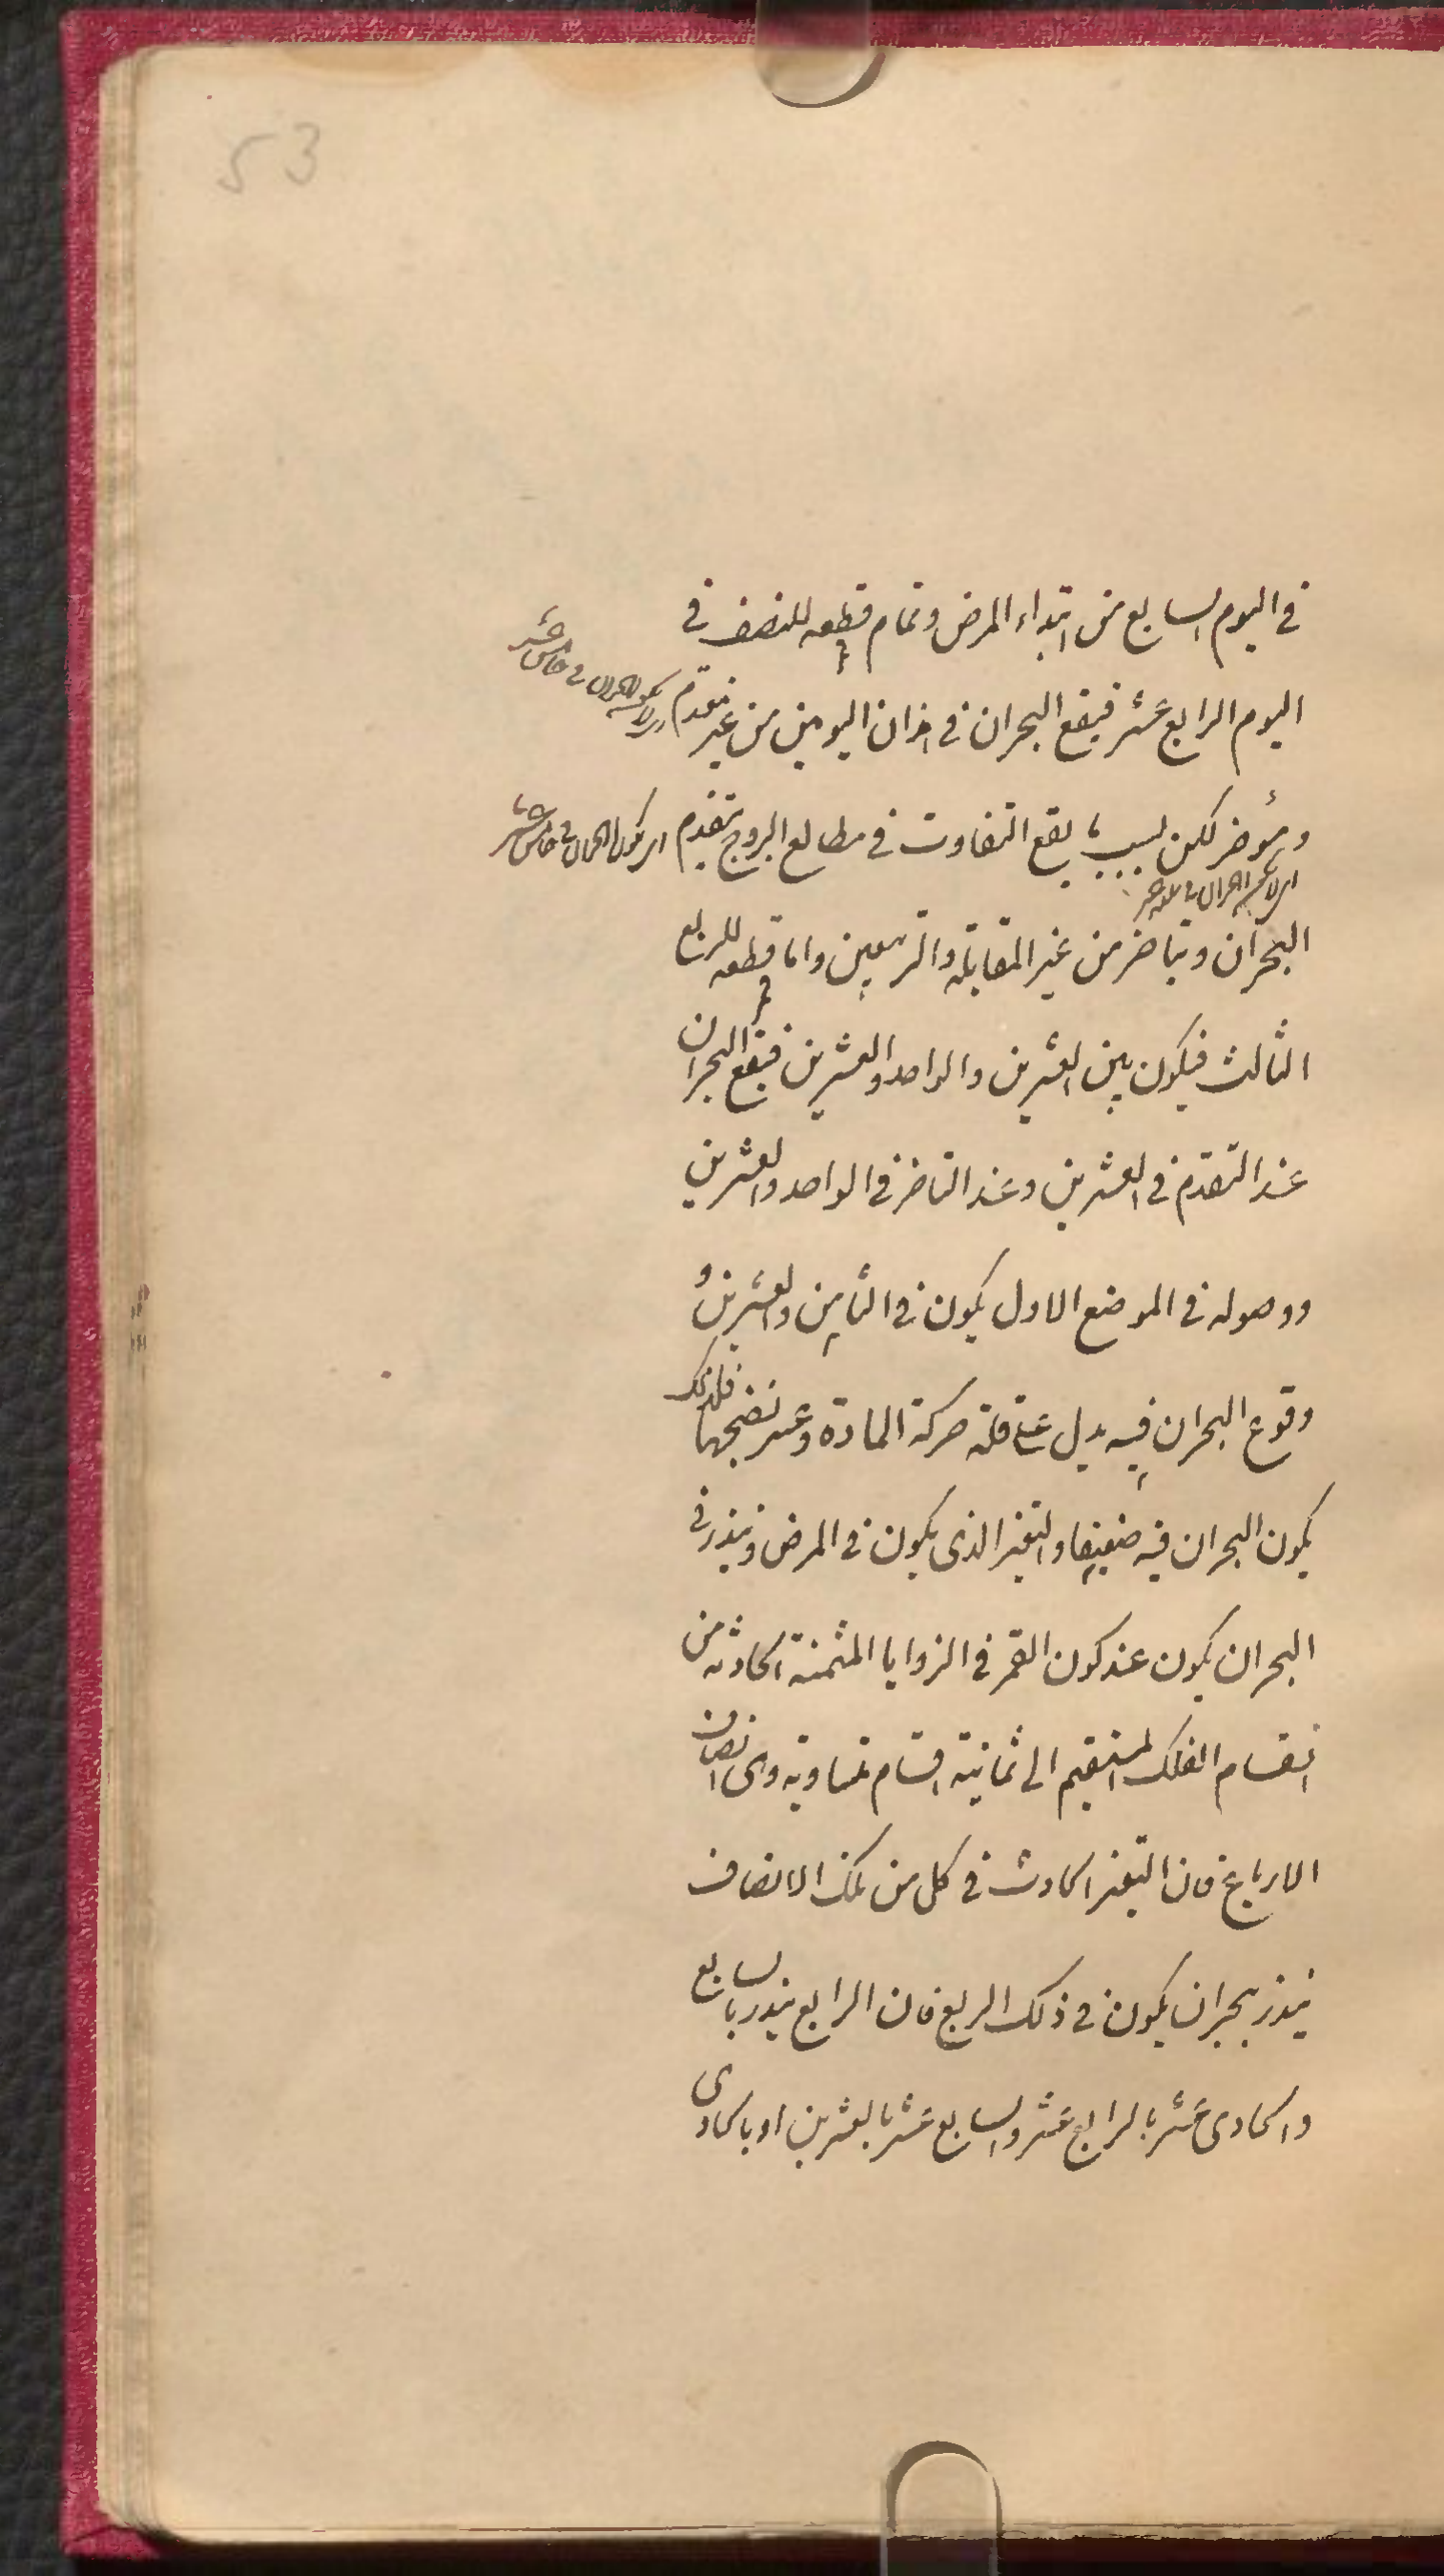 53
في اليوم السابع من ابتداء المرض وتمام قطعه للنصف في
اليوم الرابع عشر فيقع البحران في هذان اليومين من غير تقدم
ومؤخر لكن بسبب يقع التفاوت في مطالع البروج يتقدم
البحران ويتاخر من غير المقابلة والتربيعين واما قطعه للربع
الثالث فيكون بين العشرين والواحد والعشرين فيقع البحران
عند التقدم في العشرين وعند التاخر في الواحد والعشرين
ووصوله في الموضع الاول يكون في الثامن والعشرين و
وقوع البحران فيه يدل على قلة حركة المادة وعسر نضجها فلذلك
يكون البحران فيه ضعيفا والتغير الذي يكون في المرض وينذر في
البحران يكون عند كون القمر في الزوايا المثمنة الحادثة من
انقسام الفلك المستقيم الى ثمانية اقسام متساوية وهي انصاف
الارباع فان التغير الحادث في كل من تلك الانصاف
ينذر ببحران يكون في ذلك الربع فان الرابع ينذر بالسابع
والحادي عشر بالرابع عشر والسابع عشر بالعشرين او بالحادي